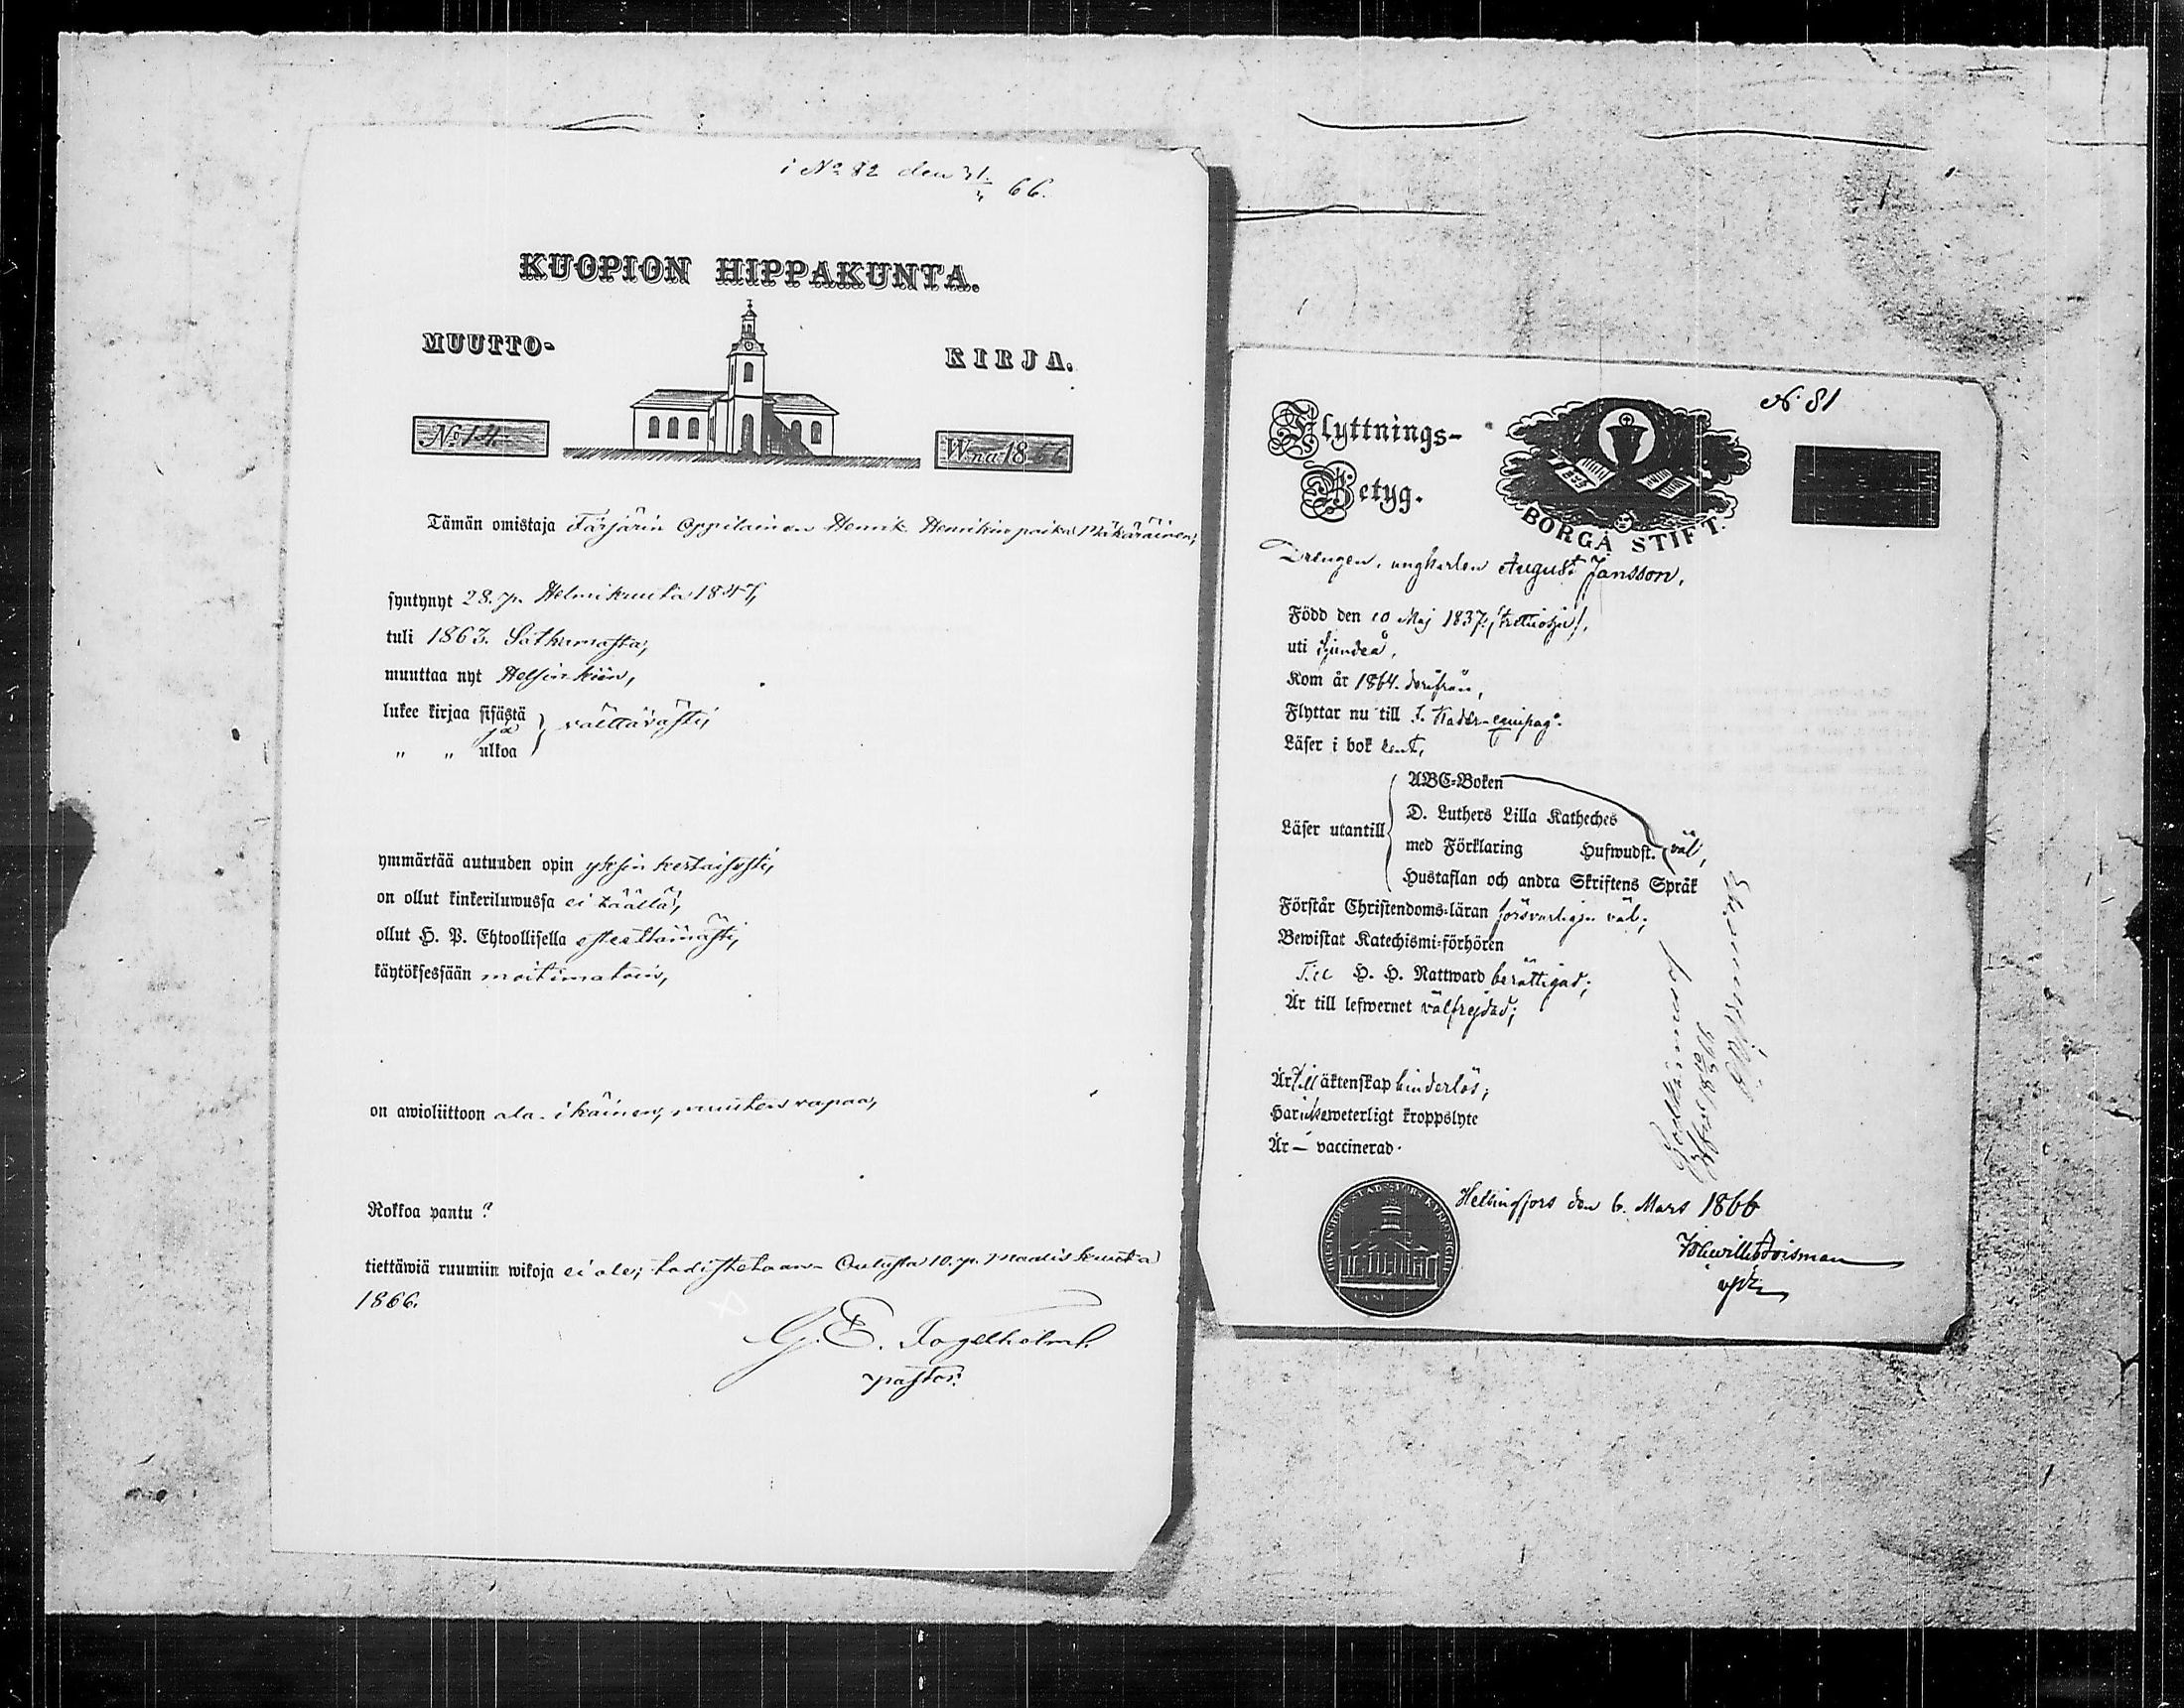 i No 82 den 31/3 66.
KUOPION HIPPAKUNTA.
MUUTTO- KIRJA.
No 14. Wna 1866
Tämän omistaja Färjärin Oppilainen Henrik Henrikin poika Mäkäräinen,
syntynyt 28. p. Helmikuuta 1847,
tuli 1863. Sotkamosta,
muuttaa nyt Helsinkiin,
lukee kirjaa sisästä
ja välttävästi,
„ „ ulkoa
ymmärtää autuuden opin yksinkertaisesti,
on ollut kinkeriluwussa ei täällä,
ollut H. P. Ehtoollisella esteettömästi,
käytöksessään moitimatoin,
on awioliittoon ala-ikäinen, muuten vapaa,
Rokkoa pantu?
tiettäwiä ruumiin wikoja ei ole; todistetaan. Oulusta 10. p. Maaliskuuta
1866.
G. E. Fogelholm.
pastor.
No 81
Flyttnings-
Betyg.
BORGÅ STIFT.
Drengen, ungkarlen August Jansson,
Född den 10 Maj 1837,
uti Sjundeå,
Kom år 1864. derifrån,
Flyttar nu till 1. equipage.
Läser i bok
ABC-Boken
Läser utantill
D. Luthers Lilla Katheches
med Förklaring Hufwudst. väl,
Hustaflan och andra Skriftens Språk
Förstår Christendoms-läran försvarligen väl;
Bewistat Katechismi-förhören
Till H. H. Nattward berättigad;
Är till lefwernet välfrejdad;
Är till äktenskap hinderlös;
Har icke weterligt kroppslyte
Är — vaccinerad.
Helsingfors den 6. Mars 1866